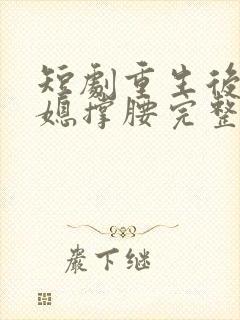 短劇重生後
媳撐腰完整
嚴下继